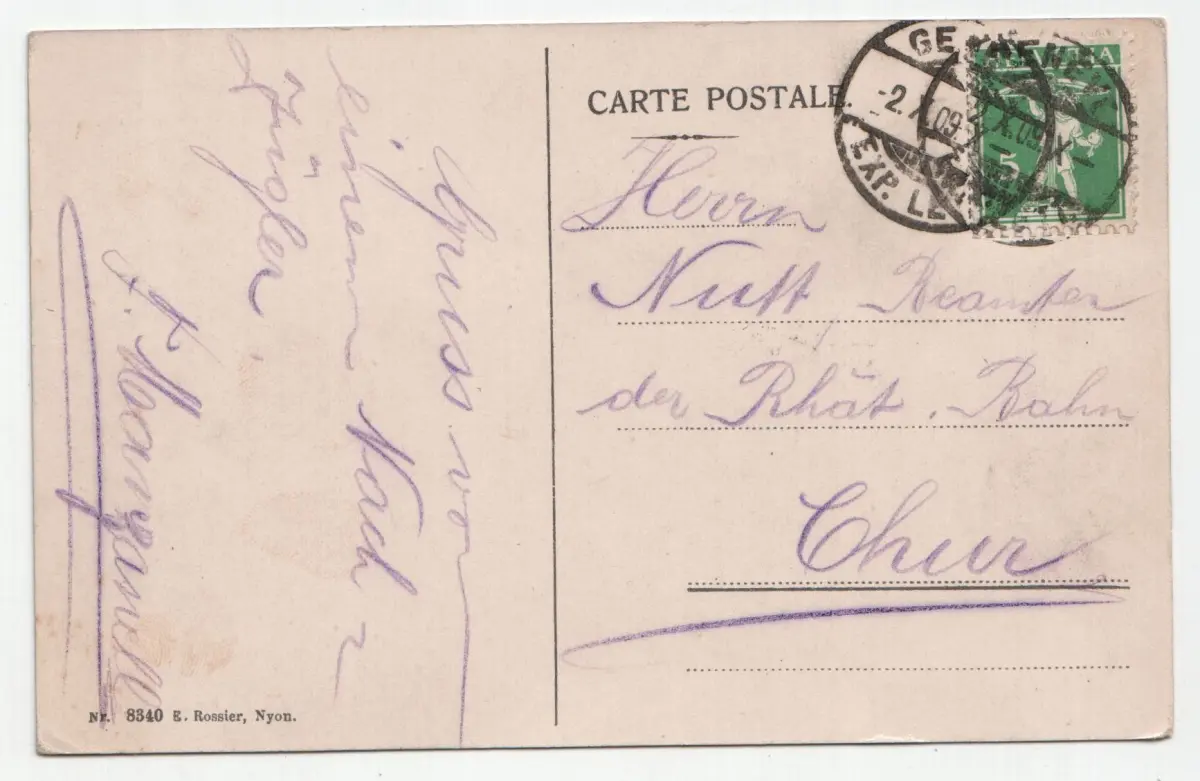 CARTE POSTALE.
HELVETIA
5
GENÈVE
-2.X.09.
EXP. LE
Herrn
Nutt Beamter
der Rhät. Bahn
Chur
Gruss von
einem Nach
zügler
J. Manzanell
Nr. 8340 E. Rossier, Nyon.